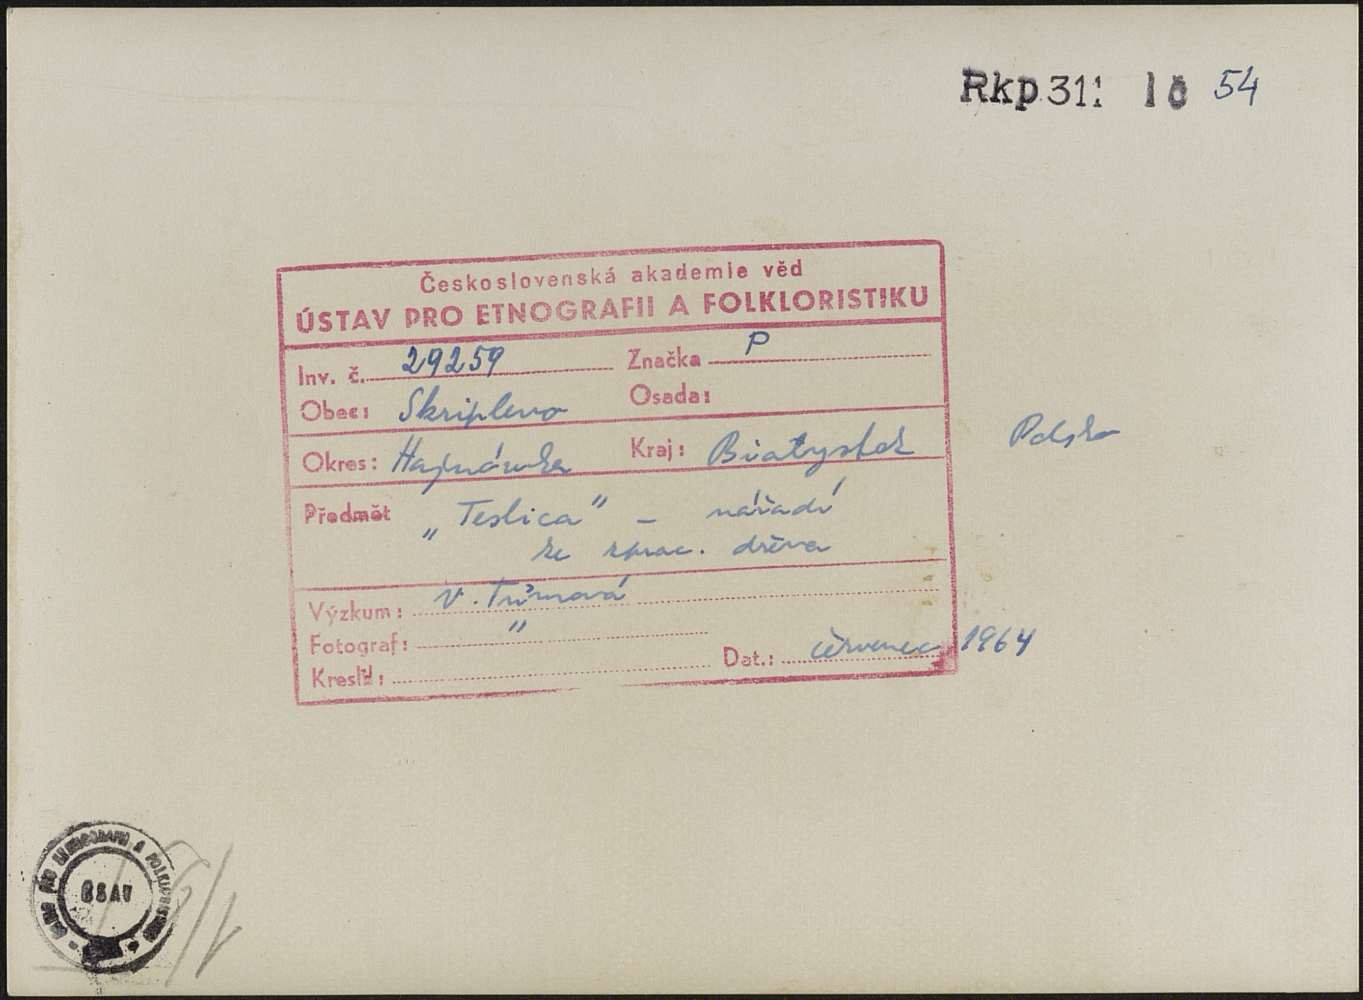 Rkp 311 Ič 54
Československá akademie věd
ÚSTAV PRO ETNOGRAFII A FOLKLORISTIKU
Inv. č. 29259 Značka P
Obec: Skriplevo Osada:
Okres: Hajnówka Kraj: Białystok Polsko
Předmět „Teslica" – nářadí
ke zprac. dřeva
Výzkum: V. Tůmová
Fotograf: "
Kreslil: Dat.: červenec 1964
PRO ETNOGRAFII A FOLKLORISTIKU
ČSAV